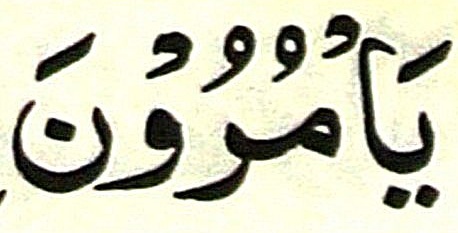 يَاْمُرُوْنَ